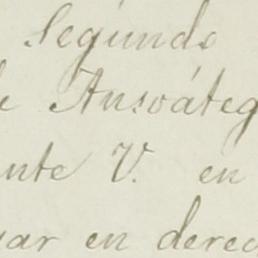 Segundo
e Ansoáteg
nte V. en
uar en derec